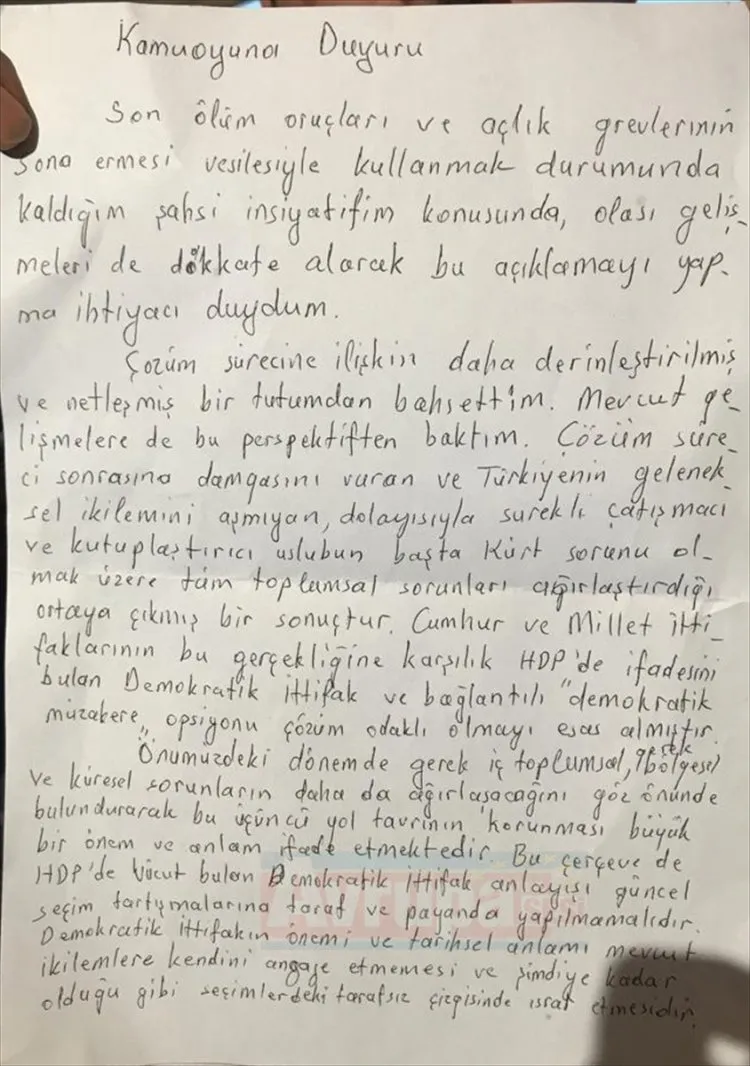 Kamuoyuna Duyuru
Son ölüm oruçları ve açlık grevlerinin
sona ermesi vesilesiyle kullanmak durumunda
kaldığım şahsi insiyatifim konusunda, olası geliş-
meleri de dikkate alarak bu açıklamayı yap-
ma ihtiyacı duydum.
Çozüm sürecine ilişkin daha derinleştirilmiş
ve netleşmiş bir tutumdan bahsettim. Mevcut ge-
lişmelere de bu perspektiften baktım. Çözüm süre-
ci sonrasına damgasını vuran ve Türkiyenin gelenek-
sel ikilemini aşmıyan, dolayısıyla sureklı çatışmacı
ve kutuplaştırıcı uslubun başta Kürt sorunu ol-
mak üzere tüm toplumsal sorunları ağırlaştırdığı
ortaya çıkmış bir sonuçtur. Cumhur ve Millet itti-
faklarının bu gerçekliğine karşılık HDP'de ifadesini
bulan Demokratik ittifak ve bağlantılı "demokratik
müzakere" opsiyonu çözüm odaklı olmayı esas almıştır.
Önumüzdeki dönemde gerek iç toplumsal, gerek bölgesel
ve küresel sorunların daha da ağırlaşacağını göz önünde
bulundurarak bu üçüncü yol tavrının korunması büyük
bir önem ve anlam ifade etmektedir. Bu çerçeve de
HDP'de vücut bulan Demokratik ittifak anlayışı güncel
seçim tartışmalarına taraf ve payanda yapılmamalıdır.
Demokratik ittifakın önemi ve tarihsel anlamı mevcut
ikilemlere kendini angaje etmemesi ve şimdiye kadar
olduğu gibi seçimlerdeki tarafsız çizgisinde ısrar etmesidir.